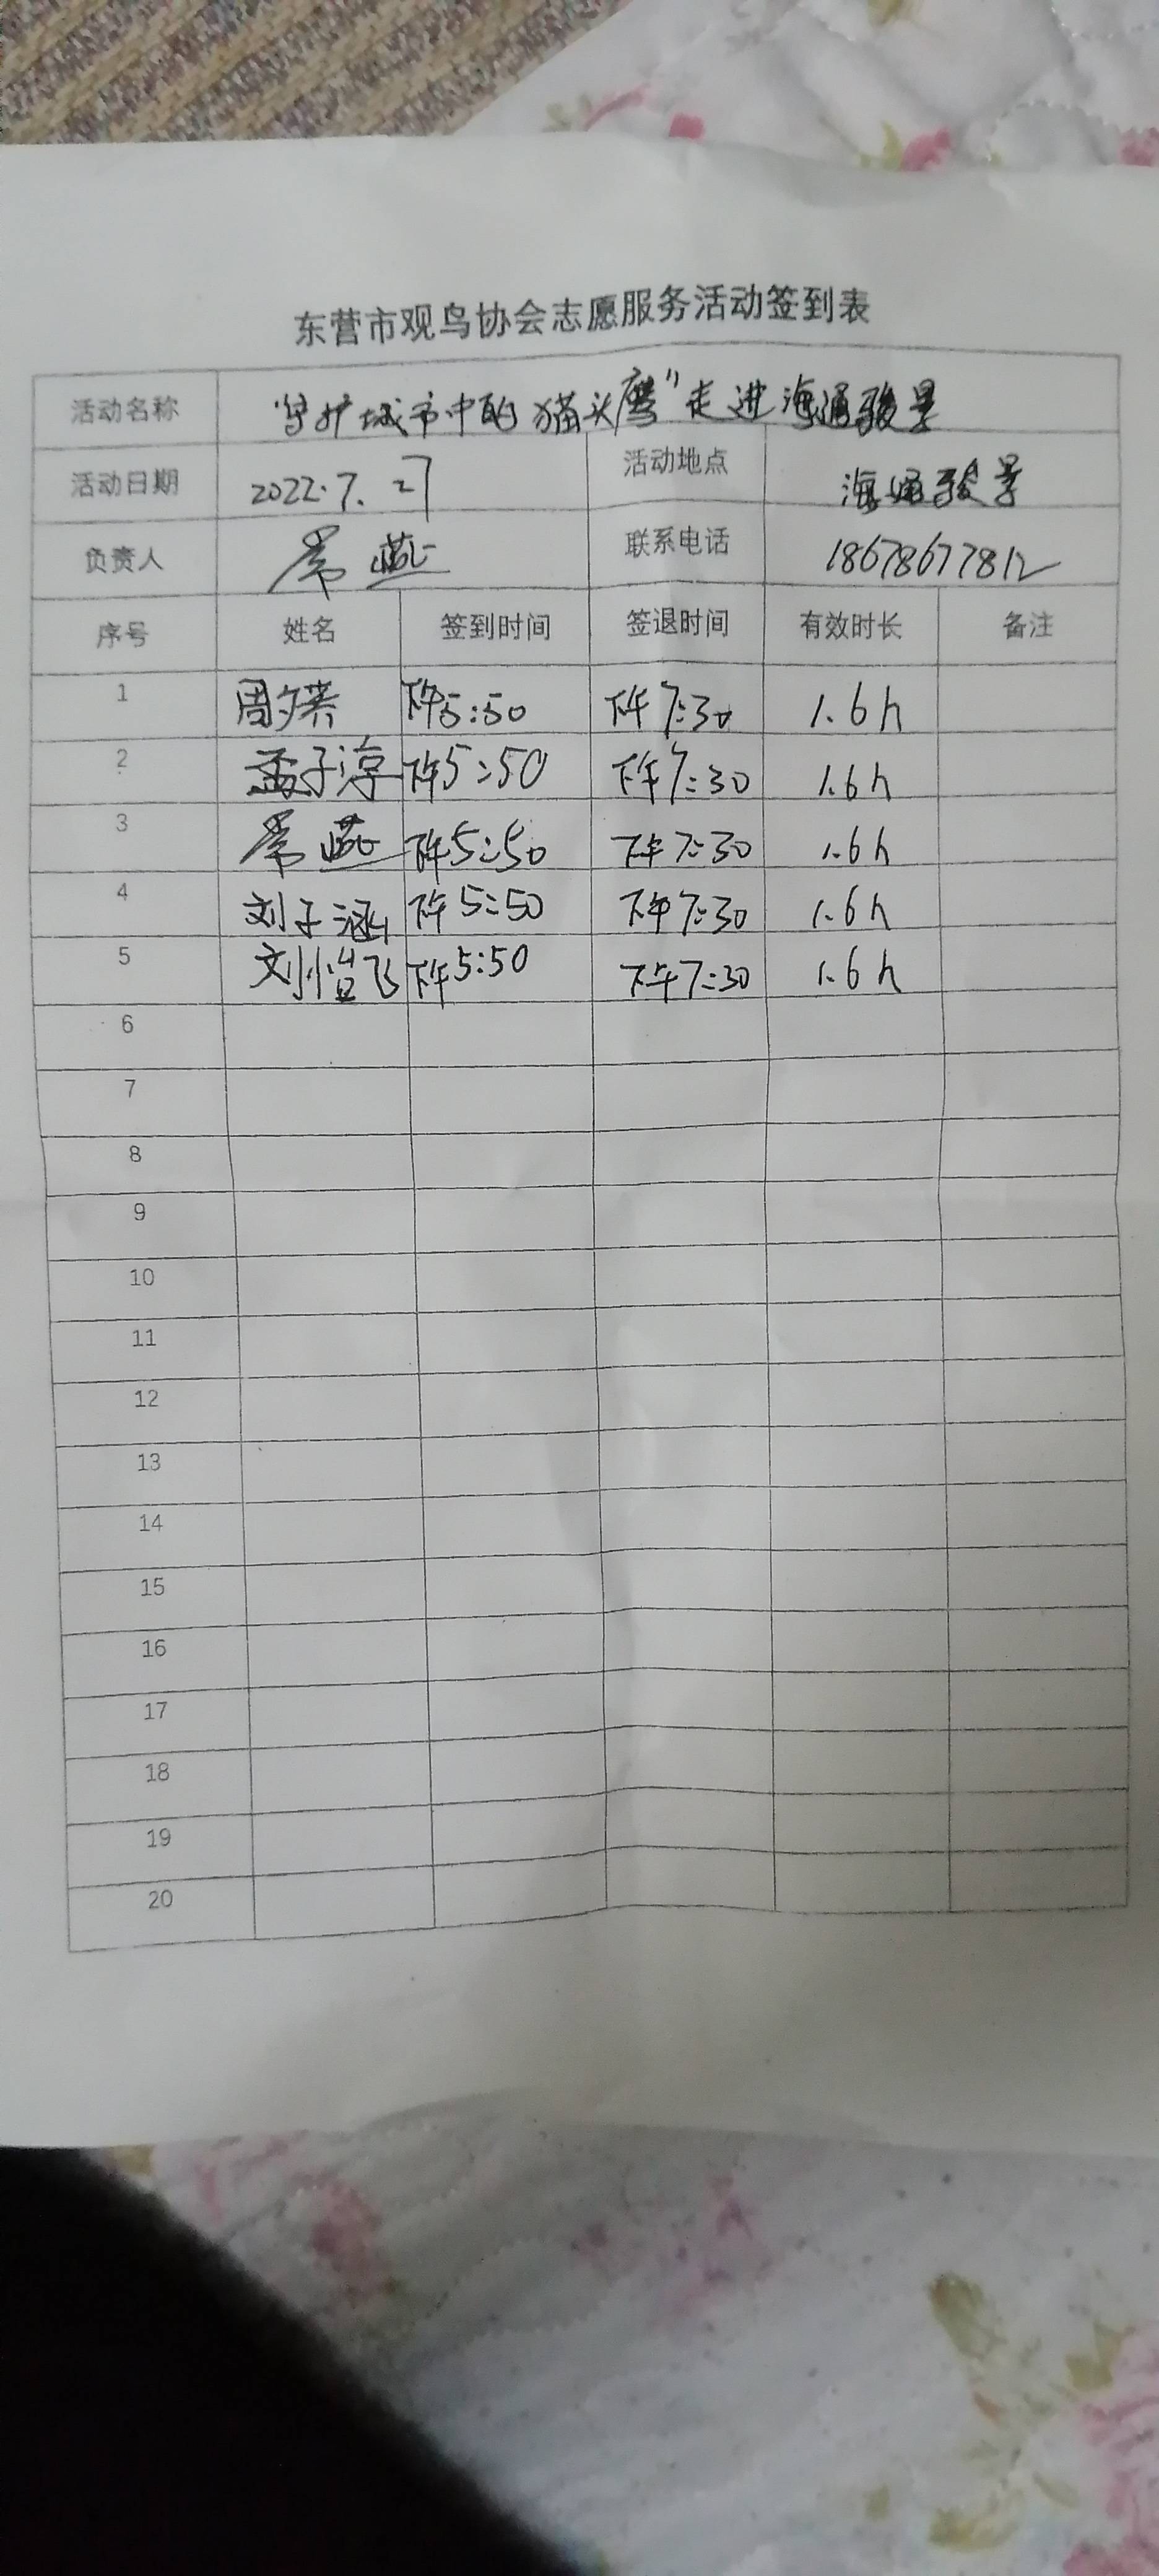 东营市观鸟协会志愿服务活动签到表
活动名称 "守护城市中的猫头鹰"走进海通骏景
活动日期 2022.7.27 活动地点 海通骏景
负责人 常燕 联系电话 18678677812
序号 姓名 签到时间 签退时间 有效时长 备注
1 周夕 下午5:50 下午7:30 1.6h
2 孟子淳 下午5:50 下午7:30 1.6h
3 常燕 下午5:50 下午7:30 1.6h
4 刘子涵 下午5:50 下午7:30 1.6h
5 刘怡飞 下午5:50 下午7:30 1.6h
6
7
8
9
10
11
12
13
14
15
16
17
18
19
20